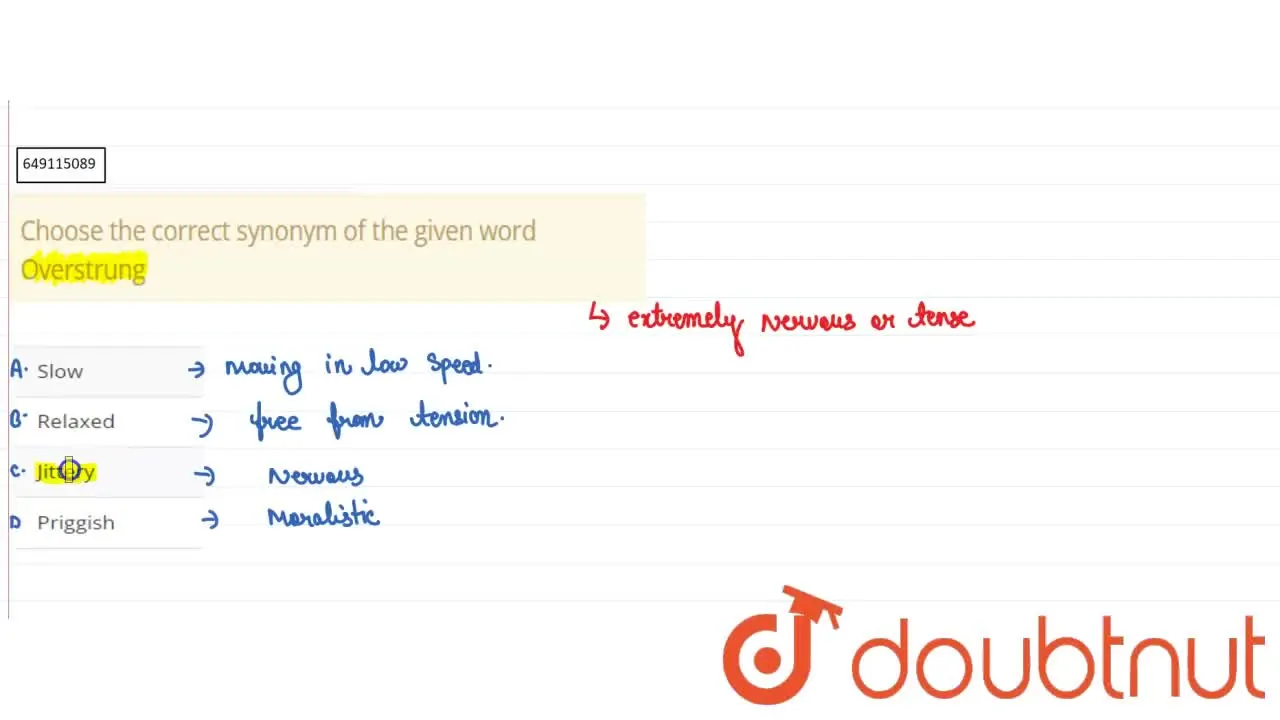 649115089
Choose the correct synonym of the given word
Overstrung
↳ extremely nervous or tense
A. Slow → moving in low speed.
B. Relaxed → free from tension.
C. Jittery → Nervous
D Priggish → Moralistic
doubtnut